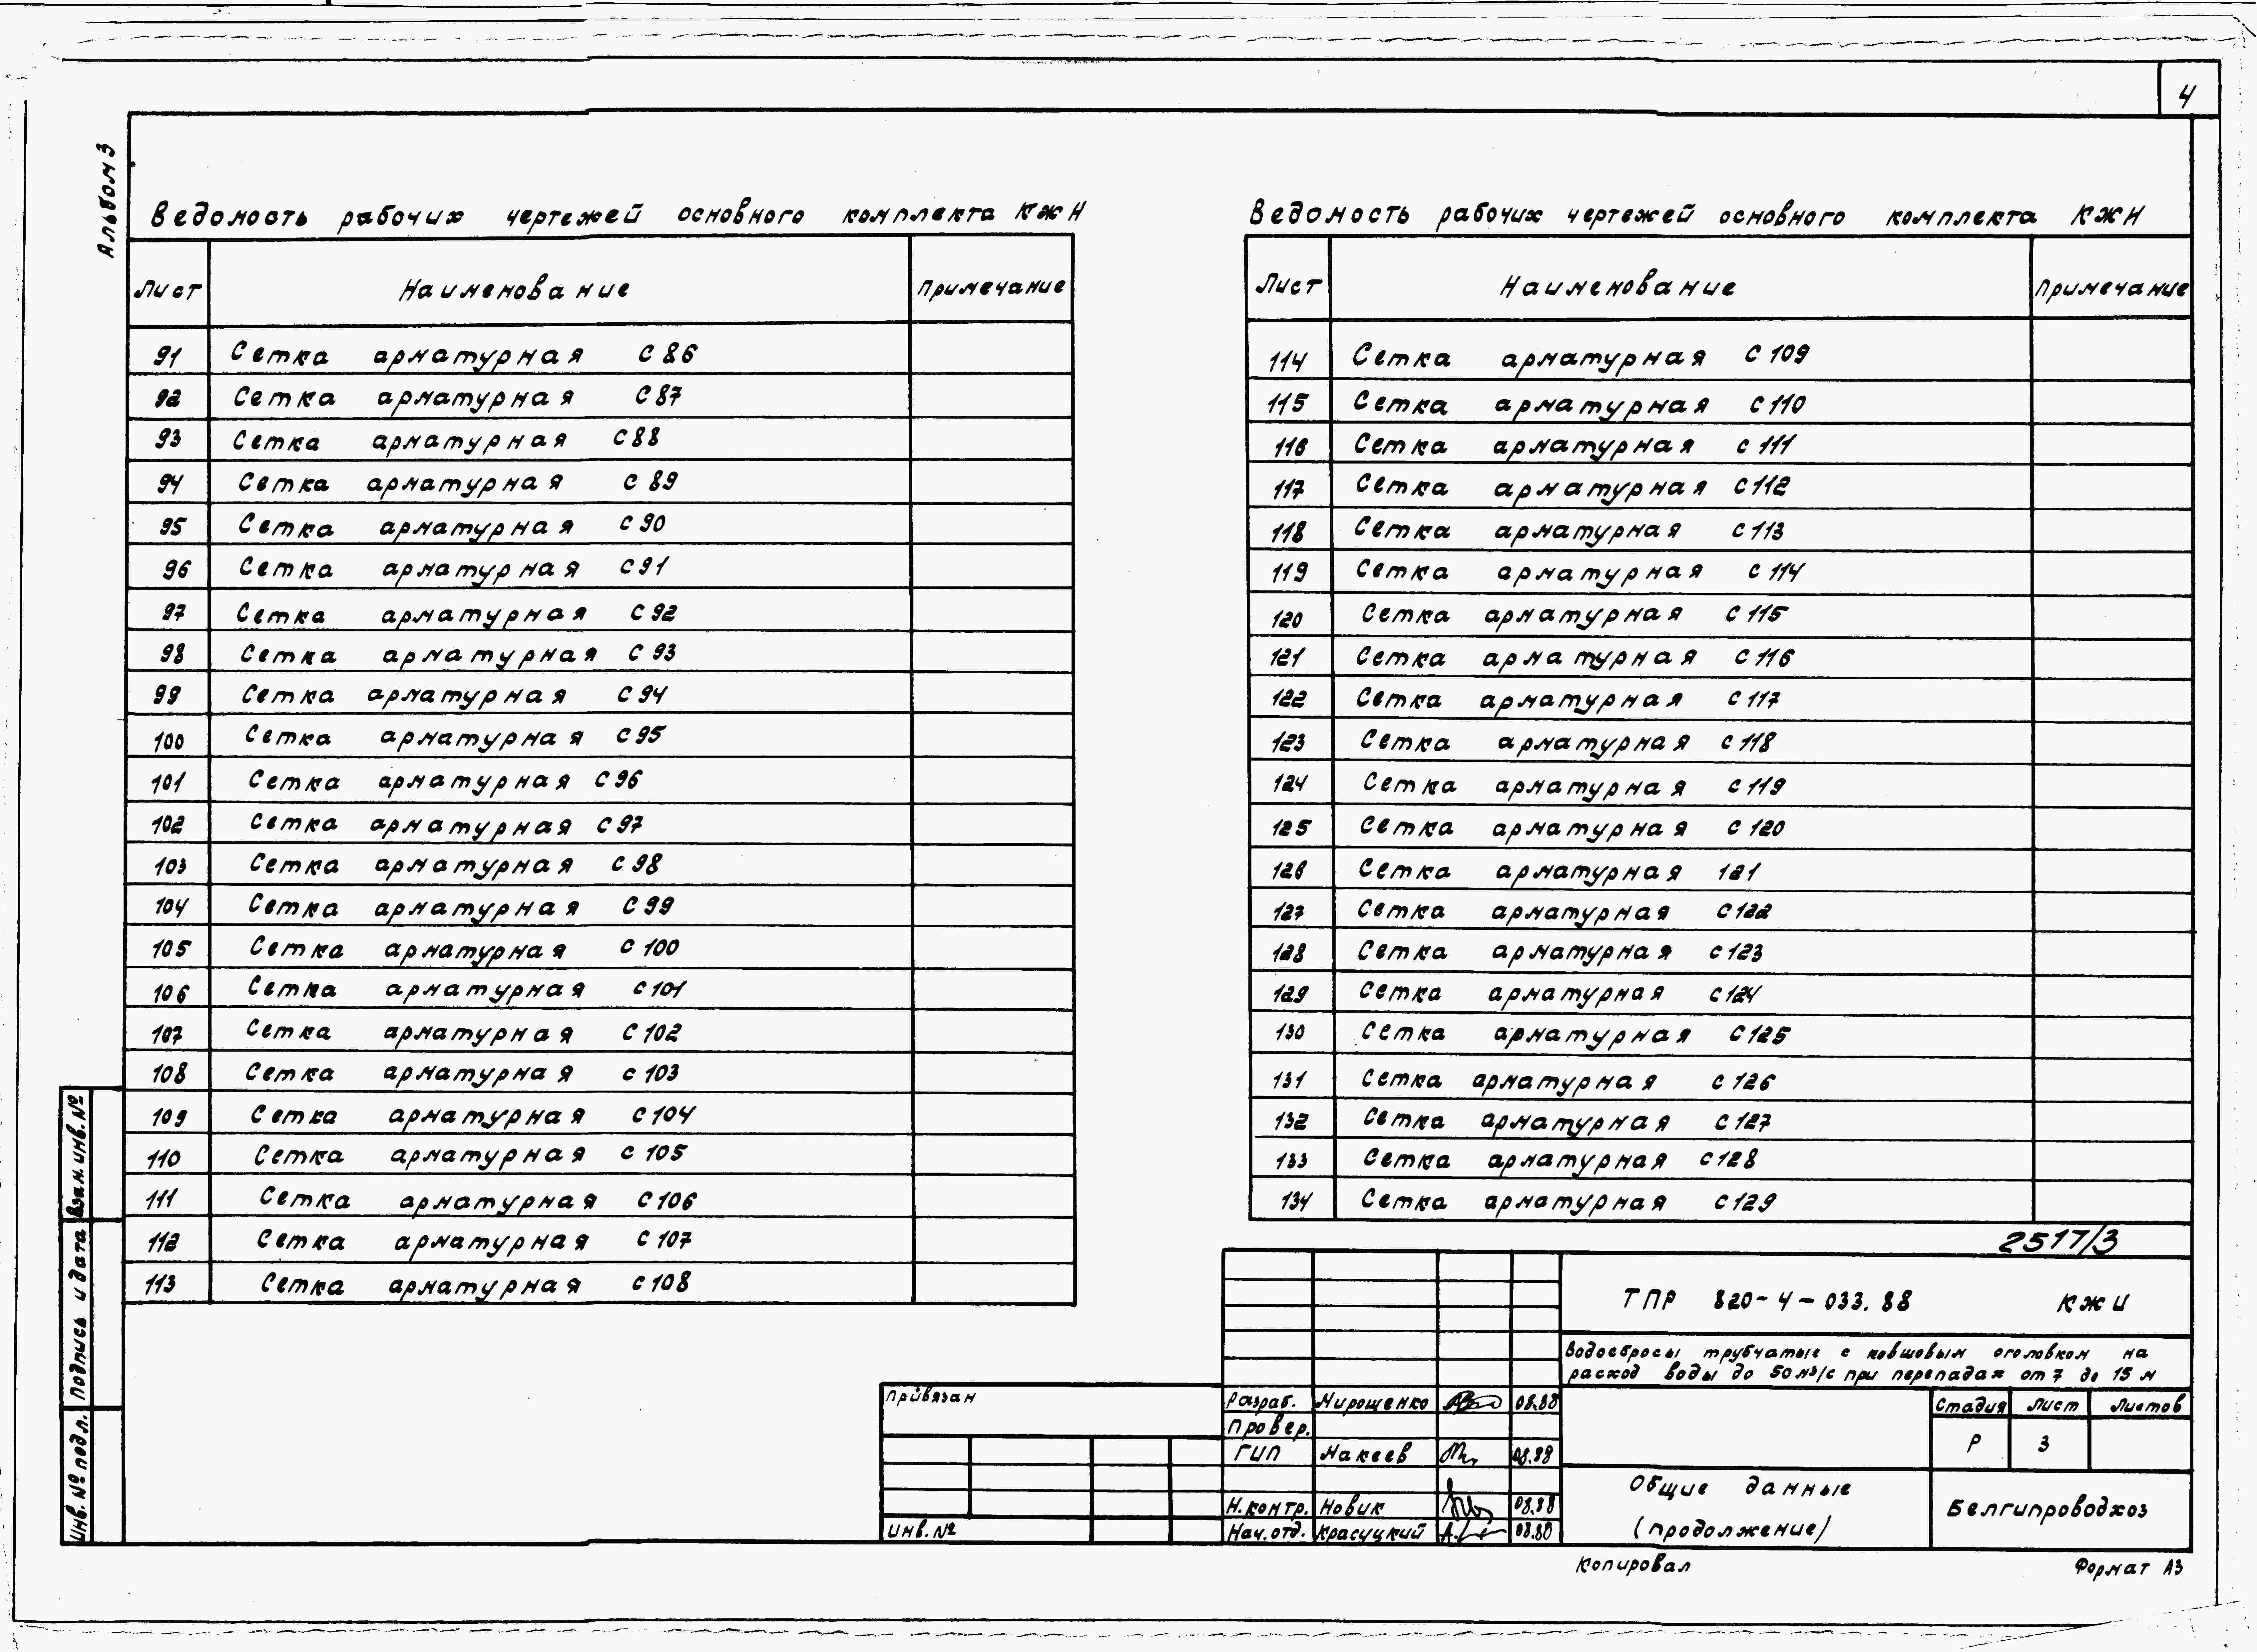 4
Альбом 3
Ведомость рабочих чертежей основного комплекта КЖИ
Лист Наименование Примечание
91 Сетка арматурная С 86
92 Сетка арматурная С 87
93 Сетка арматурная С 88
94 Сетка арматурная С 89
95 Сетка арматурная С 90
96 Сетка арматурная С 91
97 Сетка арматурная С 92
98 Сетка арматурная С 93
99 Сетка арматурная С 94
100 Сетка арматурная С 95
101 Сетка арматурная С 96
102 Сетка арматурная С 97
103 Сетка арматурная С 98
104 Сетка арматурная С 99
105 Сетка арматурная С 100
106 Сетка арматурная С 101
107 Сетка арматурная С 102
108 Сетка арматурная С 103
109 Сетка арматурная С 104
110 Сетка арматурная С 105
111 Сетка арматурная С 106
112 Сетка арматурная С 107
113 Сетка арматурная С 108
Ведомость рабочих чертежей основного комплекта КЖИ
Лист Наименование Примечание
114 Сетка арматурная С 109
115 Сетка арматурная С 110
116 Сетка арматурная С 111
117 Сетка арматурная С 112
118 Сетка арматурная С 113
119 Сетка арматурная С 114
120 Сетка арматурная С 115
121 Сетка арматурная С 116
122 Сетка арматурная С 117
123 Сетка арматурная С 118
124 Сетка арматурная С 119
125 Сетка арматурная С 120
126 Сетка арматурная 121
127 Сетка арматурная С 122
128 Сетка арматурная С 123
129 Сетка арматурная С 124
130 Сетка арматурная С 125
131 Сетка арматурная С 126
132 Сетка арматурная С 127
133 Сетка арматурная С 128
134 Сетка арматурная С 129
2517/3
ТПР 820-4-033.88 КЖИ
Водосбросы трубчатые с ковшовым оголовком на
расход воды до 50 м³/с при перепадах от 7 до 15 м
Привязан
Инв. №
Разраб. Мирошенко 08.88
Провер.
ГИП Макеев 08.88
Н.контр. Новик 08.88
Нач.отд. Красуцкий 08.88
Стадия Лист Листов
Р 3
Общие данные
(продолжение)
Белгипроводхоз
Взам. инв. №
Подпись и дата
Инв. № подл.
Копировал
Формат А3